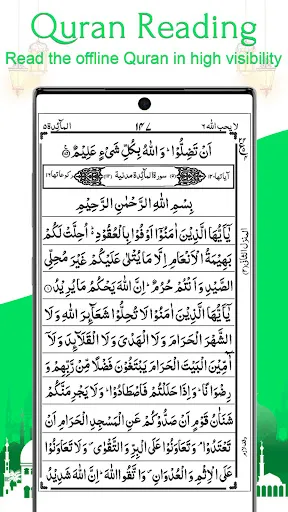 Quran Reading
Read the offline Quran in high visibility
لا يحب الله ٦
١٤٧
المآئدة ٥
اَنْ تَضِلُّوْا ؕ وَاللّٰهُ بِكُلِّ شَیْءٍ عَلِیْمٌ
سورة المآئدة مدنية
بِسْمِ اللّٰهِ الرَّحْمٰنِ الرَّحِیْمِ
یٰۤاَیُّهَا الَّذِیْنَ اٰمَنُوْۤا اَوْفُوْا بِالْعُقُوْدِ ؕ اُحِلَّتْ لَكُمْ
بَهِیْمَةُ الْاَنْعَامِ اِلَّا مَا یُتْلٰی عَلَیْكُمْ غَیْرَ مُحِلِّی
الصَّیْدِ وَاَنْتُمْ حُرُمٌ ؕ اِنَّ اللّٰهَ یَحْكُمُ مَا یُرِیْدُ
یٰۤاَیُّهَا الَّذِیْنَ اٰمَنُوْا لَا تُحِلُّوْا شَعَآئِرَ اللّٰهِ وَلَا
الشَّهْرَ الْحَرَامَ وَلَا الْهَدْیَ وَلَا الْقَلَآئِدَ وَلَاۤ
آٰمِّیْنَ الْبَیْتَ الْحَرَامَ یَبْتَغُوْنَ فَضْلًا مِّنْ رَّبِّهِمْ وَ
رِضْوَانًا ؕ وَاِذَا حَلَلْتُمْ فَاصْطَادُوْا ؕ وَلَا یَجْرِمَنَّكُمْ
شَنَاٰنُ قَوْمٍ اَنْ صَدُّوْكُمْ عَنِ الْمَسْجِدِ الْحَرَامِ اَنْ
تَعْتَدُوْا ۘ وَتَعَاوَنُوْا عَلَی الْبِرِّ وَالتَّقْوٰی ۪ وَلَا تَعَاوَنُوْا
عَلَی الْاِثْمِ وَالْعُدْوَانِ ۪ وَاتَّقُوا اللّٰهَ ؕ اِنَّ اللّٰهَ شَدِیْدُ